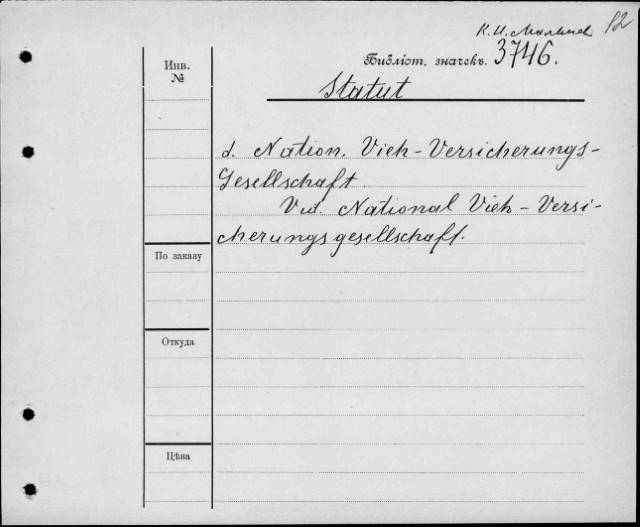 К. И. 12
Инв.
№
Библіот. значекъ. 3746.
Statut
d. Nation. Vieh-Versicherungs-
Gesellschaft.
Vid. National Vieh-Versi-
cherungsgesellschaft.
По заказу
Откуда
Цѣна